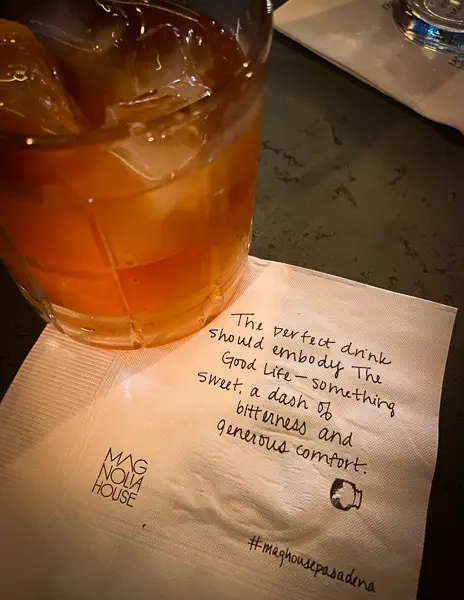 The perfect drink
should embody The
Good Life—something
sweet, a dash of
bitterness and
generous comfort.
MAG
NOLIA
HOUSE
#maghousepasadena